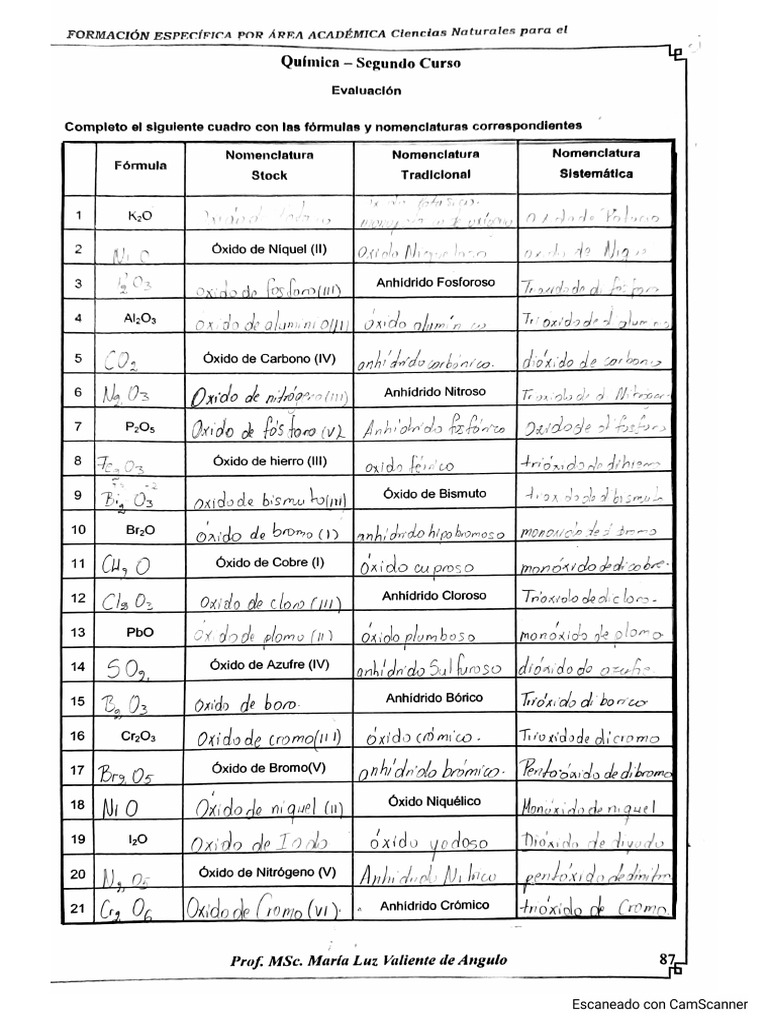 FORMACIÓN ESPECÍFICA POR ÁREA ACADÉMICA Ciencias Naturales para el
Química – Segundo Curso
Evaluación
Completo el siguiente cuadro con las fórmulas y nomenclaturas correspondientes
Fórmula Nomenclatura Stock Nomenclatura Tradicional Nomenclatura Sistemática
1 K₂O
2 NiO Óxido de Níquel (II) Oxido Niqueloso oxido de Niq
3 P₂O₃ oxido de fosforo (III) Anhídrido Fosforoso Trioxido de di fosforo
4 Al₂O₃ óxido de aluminio (III) óxido alumínico Trióxido de di alumino
5 CO₂ Óxido de Carbono (IV) anhídrido carbónico. dióxido de carbono
6 N₂O₃ Oxido de nitrógeno (III) Anhídrido Nitroso Trioxido de d Nitrógeno
7 P₂O₅ Oxido de fósforo (V) Anhídrido fosfórico Oxido de difosforo
8 Fe₂O₃ Óxido de hierro (III) oxido férrico trióxido de dihierro
9 Bi₂O₃ oxido de bismuto (III) Óxido de Bismuto triox do de d bismuto
10 Br₂O óxido de bromo (I) anhídrido hipobromoso monoxido de d bromo
11 CU₂O Óxido de Cobre (I) óxido cuproso monóxido de dicobre.
12 Cl₂O₃ Oxido de cloro (III) Anhídrido Cloroso Trióxido de dicloro.
13 PbO óxido de plomo (II) óxido plumboso monóxido de plomo
14 SO₂ Óxido de Azufre (IV) anhídrido Sulfuroso dióxido de azufre
15 B₂O₃ oxido de boro. Anhídrido Bórico Trióxido di borico
16 Cr₂O₃ Oxido de cromo (III) óxido crómico. Trioxido de dicromo
17 Br₂O₅ Óxido de Bromo(V) anhídrido brómico. Pentoóxido de dibromo
18 NiO Óxido de niquel (II) Óxido Niquélico Monóxido de niquel
19 I₂O Oxido de Iodo óxido yodoso Dióxido de diyodo
20 N₂O₅ Óxido de Nitrógeno (V) Anhídrido Nitrico pentóxido de dinitro
21 Cr₂O₆ Oxido de Cromo (VI). Anhídrido Crómico trióxido de Cromo.
Prof. MSc. María Luz Valiente de Angulo 87
Escaneado con CamScanner